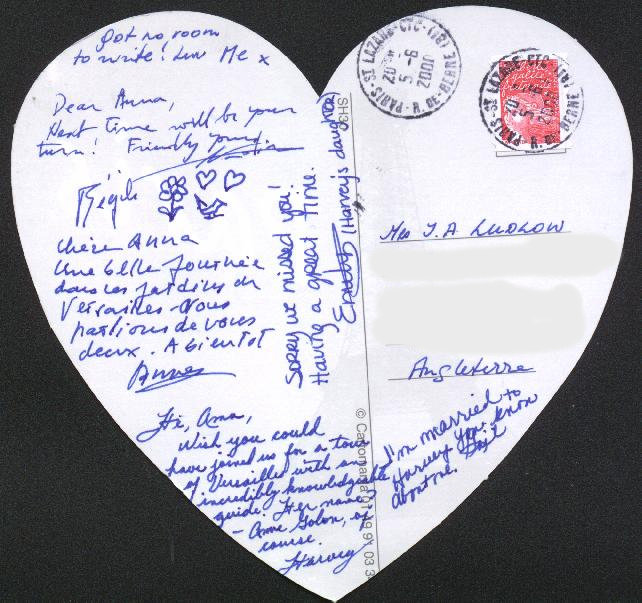 Got no room
to write! Luv Me x
Dear Anna,
Next Time will be your
turn! Friendly yours.
Chère Anna
Une belle journée
dans les jardins de
Versailles - Nous
parlions de vous
deux. A bientôt
Anne
Sorry we missed you!
Having a great time.
(Harvey's daughter)
Hi, Anna,
Wish you could
have joined us for a tour
of Versailles with an
incredibly knowledgeable
guide. Her name
- Anne Golon, of
course.
Harvey
I'm married to
Harvey you know
about me.
SH3
© Cartomania
PARIS-ST LAZARE-CTC-(18)
20H
5 -6
2000
R. DE BERNE
PARIS-ST LAZARE-CTC-(18)
5
2000
R. DE BERNE
Mrs J.A LUDLOW
Angleterre